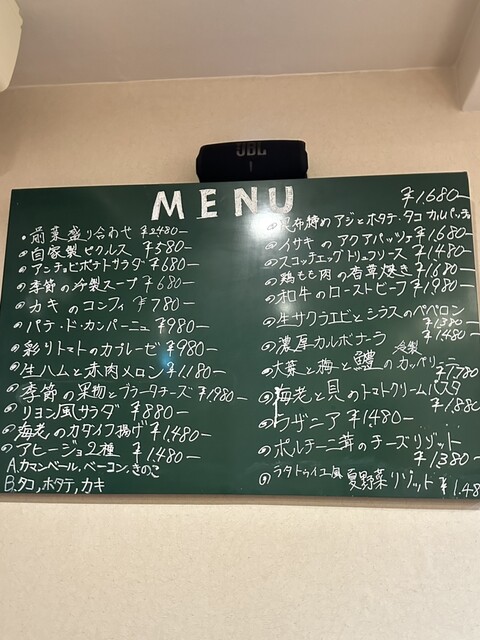 JBL
MENU
・前菜盛り合わせ ¥2480-
自家製ピクルス ¥580-
アンチョビポテトサラダ ¥680-
季節の冷製スープ ¥680-
カキのコンフィ ¥780-
パテ・ド・カンパーニュ ¥980-
彩りトマトのカプレーゼ ¥980-
生ハムと赤肉メロン ¥1,180-
季節の果物とブラータチーズ ¥1980-
リヨン風サラダ ¥880-
海老のカダイフ揚げ ¥1,480-
アヒージョ2種 ¥1,480-
A.カマンベール,ベーコン,きのこ
B.タコ,ホタテ,カキ
¥1,680-
昆布締めアジとホタテ・タコ カルパッチョ
イサキのアクアパッツァ ¥1,680-
スコッチエッグトリュフソース ¥1,480-
鶏もも肉の香草焼き ¥1,680-
和牛のローストビーフ ¥1,980-
生サクラエビとシラスのペペロン
¥1,380-
濃厚カルボナーラ ¥1,480-
冷製
大葉と梅と鱧のカッペリーニ
¥1,780
海老と貝のトマトクリームパスタ
¥1,880
ラザニア ¥1,480-
ポルチーニ茸のチーズリゾット
¥1,380-
ラタトゥイユ風 夏野菜リゾット ¥1.48